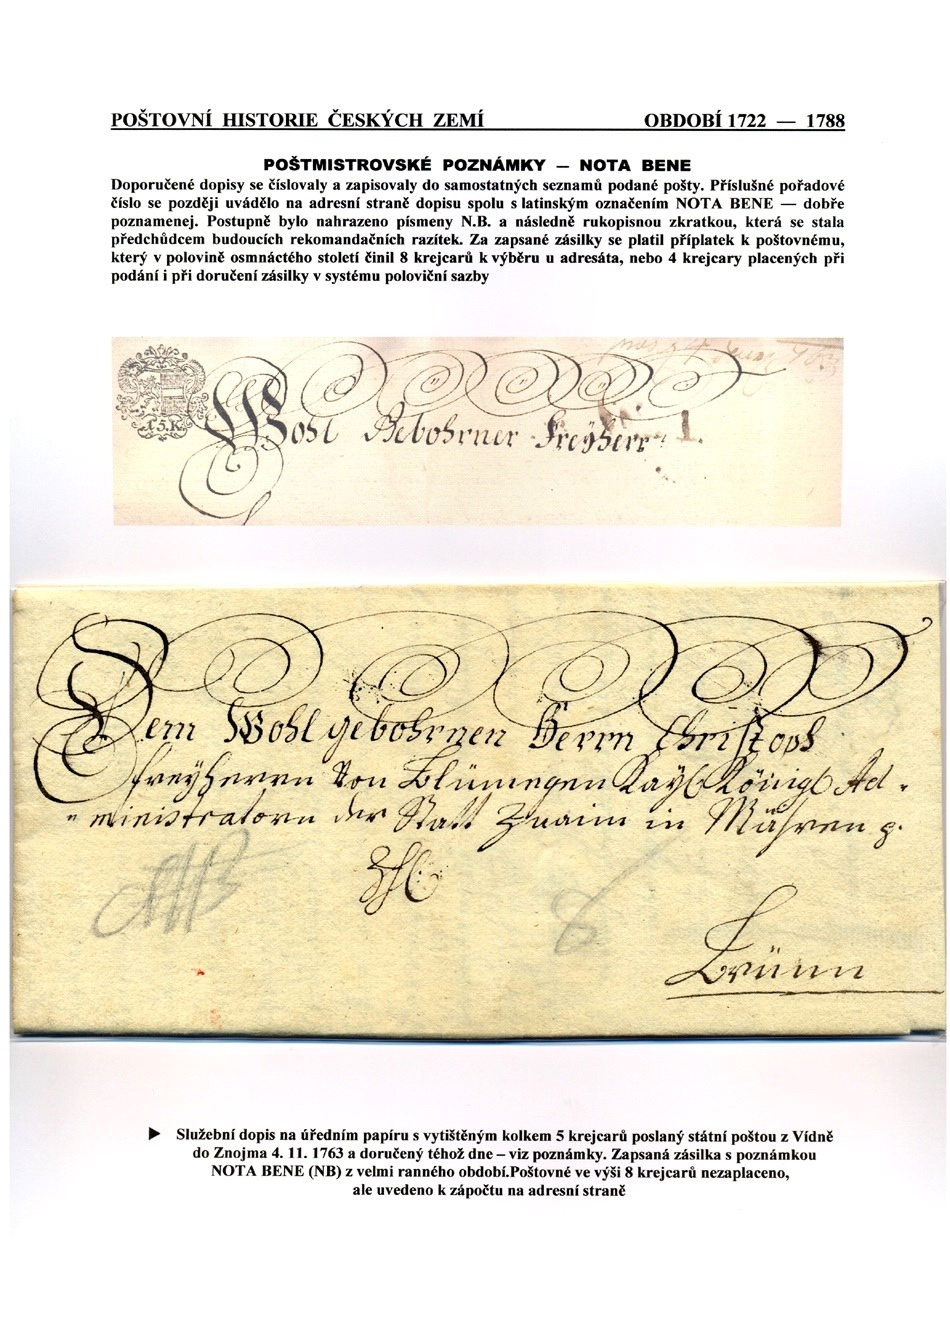 POŠTOVNÍ HISTORIE ČESKÝCH ZEMÍ OBDOBÍ 1722 — 1788
POŠTMISTROVSKÉ POZNÁMKY – NOTA BENE
Doporučené dopisy se číslovaly a zapisovaly do samostatných seznamů podané pošty. Příslušné pořadové
číslo se později uvádělo na adresní straně dopisu spolu s latinským označením NOTA BENE — dobře
poznamenej. Postupně bylo nahrazeno písmeny N.B. a následně rukopisnou zkratkou, která se stala
předchůdcem budoucích rekomandačních razítek. Za zapsané zásilky se platil příplatek k poštovnému,
který v polovině osmnáctého století činil 8 krejcarů k výběru u adresáta, nebo 4 krejcary placených při
podání i při doručení zásilky v systému poloviční sazby
Wohl Gebohrner Freyherr
Dem Wohlgebohrnen Herrn Christoph
Freyherrn Von Blümegen Kayl Königl Ad-
ministratorn der Statt Znaim in Mähren
NB
8
Brünn
► Služební dopis na úředním papíru s vytištěným kolkem 5 krejcarů poslaný státní poštou z Vídně
do Znojma 4. 11. 1763 a doručený téhož dne – viz poznámky. Zapsaná zásilka s poznámkou
NOTA BENE (NB) z velmi ranného období.Poštovné ve výši 8 krejcarů nezaplaceno,
ale uvedeno k zápočtu na adresní straně